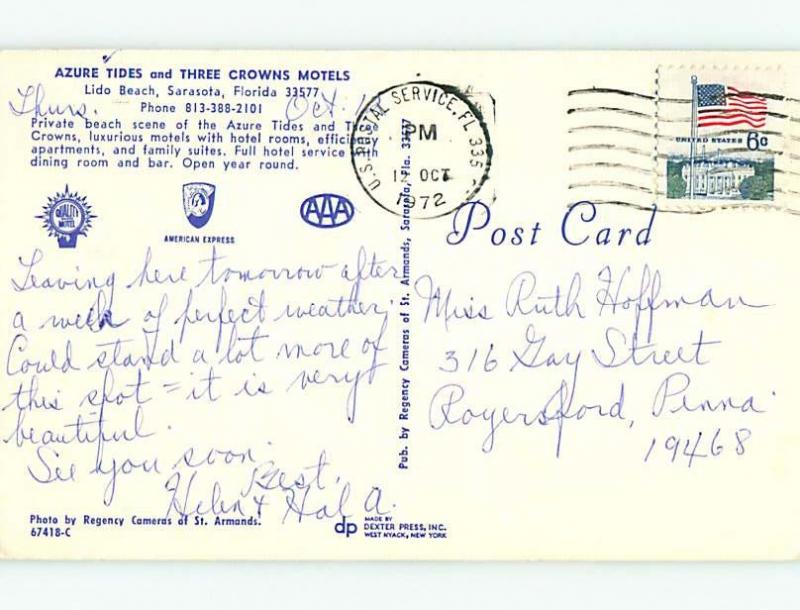 AZURE TIDES and THREE CROWNS MOTELS
Lido Beach, Sarasota, Florida 33577
Phone 813-388-2101
Thurs. Oct.
Private beach scene of the Azure Tides and Three
Crowns, luxurious motels with hotel rooms, efficiency
apartments, and family suites. Full hotel service with
dining room and bar. Open year round.
QUALITY MOTEL
AMERICAN EXPRESS
AAA
Leaving here tomorrow after
a week of perfect weather.
Could stand a lot more of
this spot = it is very
beautiful.
See you soon.
Best,
Helen & Hal A.
Photo by Regency Cameras of St. Armands.
67418-C
dp MADE BY
DEXTER PRESS, INC.
WEST NYACK, NEW YORK
Pub. by Regency Cameras of St. Armands, Sarasota, Fla. 33577
U.S. POSTAL SERVICE, FL 335
PM
12 OCT
1972
UNITED STATES 6c
Post Card
Miss Ruth Hoffman
316 Gay Street
Royersford, Penna.
19468